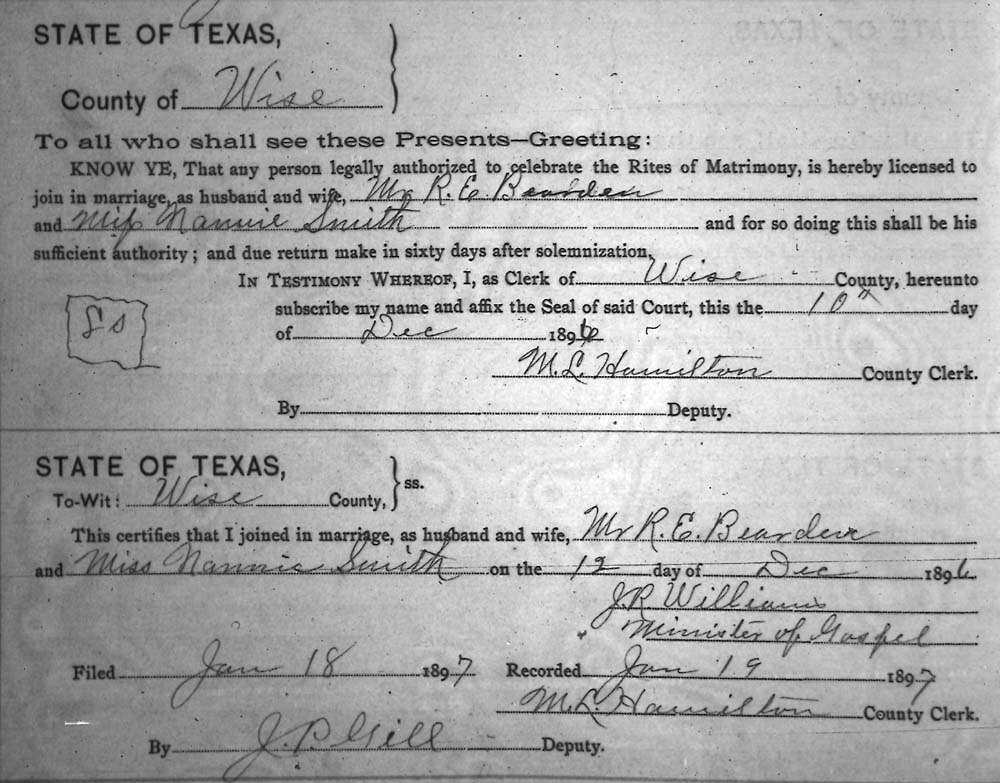 STATE OF TEXAS,
County of Wise
To all who shall see these Presents—Greeting:
KNOW YE, That any person legally authorized to celebrate the Rites of Matrimony, is hereby licensed to
join in marriage, as husband and wife, Mr R. E. Bearden
and Miss Nannie Smith and for so doing this shall be his
sufficient authority; and due return make in sixty days after solemnization.
IN TESTIMONY WHEREOF, I, as Clerk of Wise County, hereunto
subscribe my name and affix the Seal of said Court, this the 10th day
of Dec 1896
LS
M. L. Hamilton County Clerk.
By Deputy.
STATE OF TEXAS,
To-Wit: Wise County, ss.
This certifies that I joined in marriage, as husband and wife, Mr R. E. Bearden
and Miss Nannie Smith on the 12 day of Dec 1896
J. R. Williams
Minister of Gospel
Filed Jan 18 1897 Recorded Jan 19 1897
M. L. Hamilton County Clerk.
By J. P. Gill Deputy.